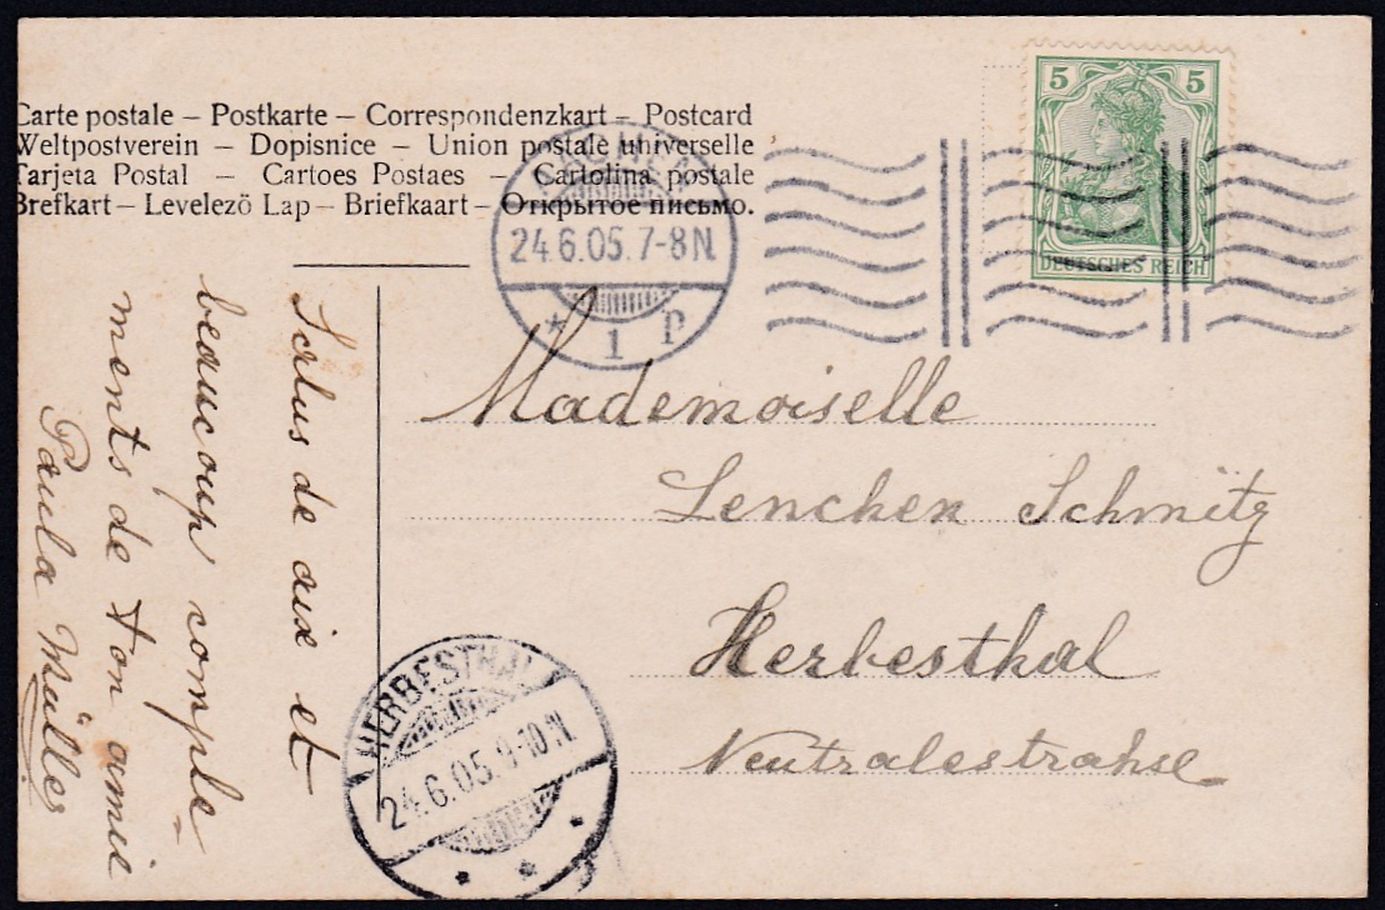 Carte postale – Postkarte – Correspondenzkart – Postcard
Weltpostverein – Dopisnice – Union postale universelle
Tarjeta Postal – Cartoes Postaes – Cartolina postale
Brefkart – Levelezö Lap – Briefkaart – Открытое письмо.
5 5
DEUTSCHES REICH
AACHEN
24.6.05.7-8N.
* 1 p
Mademoiselle
Lenchen Schmitz
Herbesthal
Neutralestrahse
Salus de aix et
beaucoup comple-
ments de ton amie
Paula Müller
HERBESTHAL
24.6.05.9-10N.
* * *